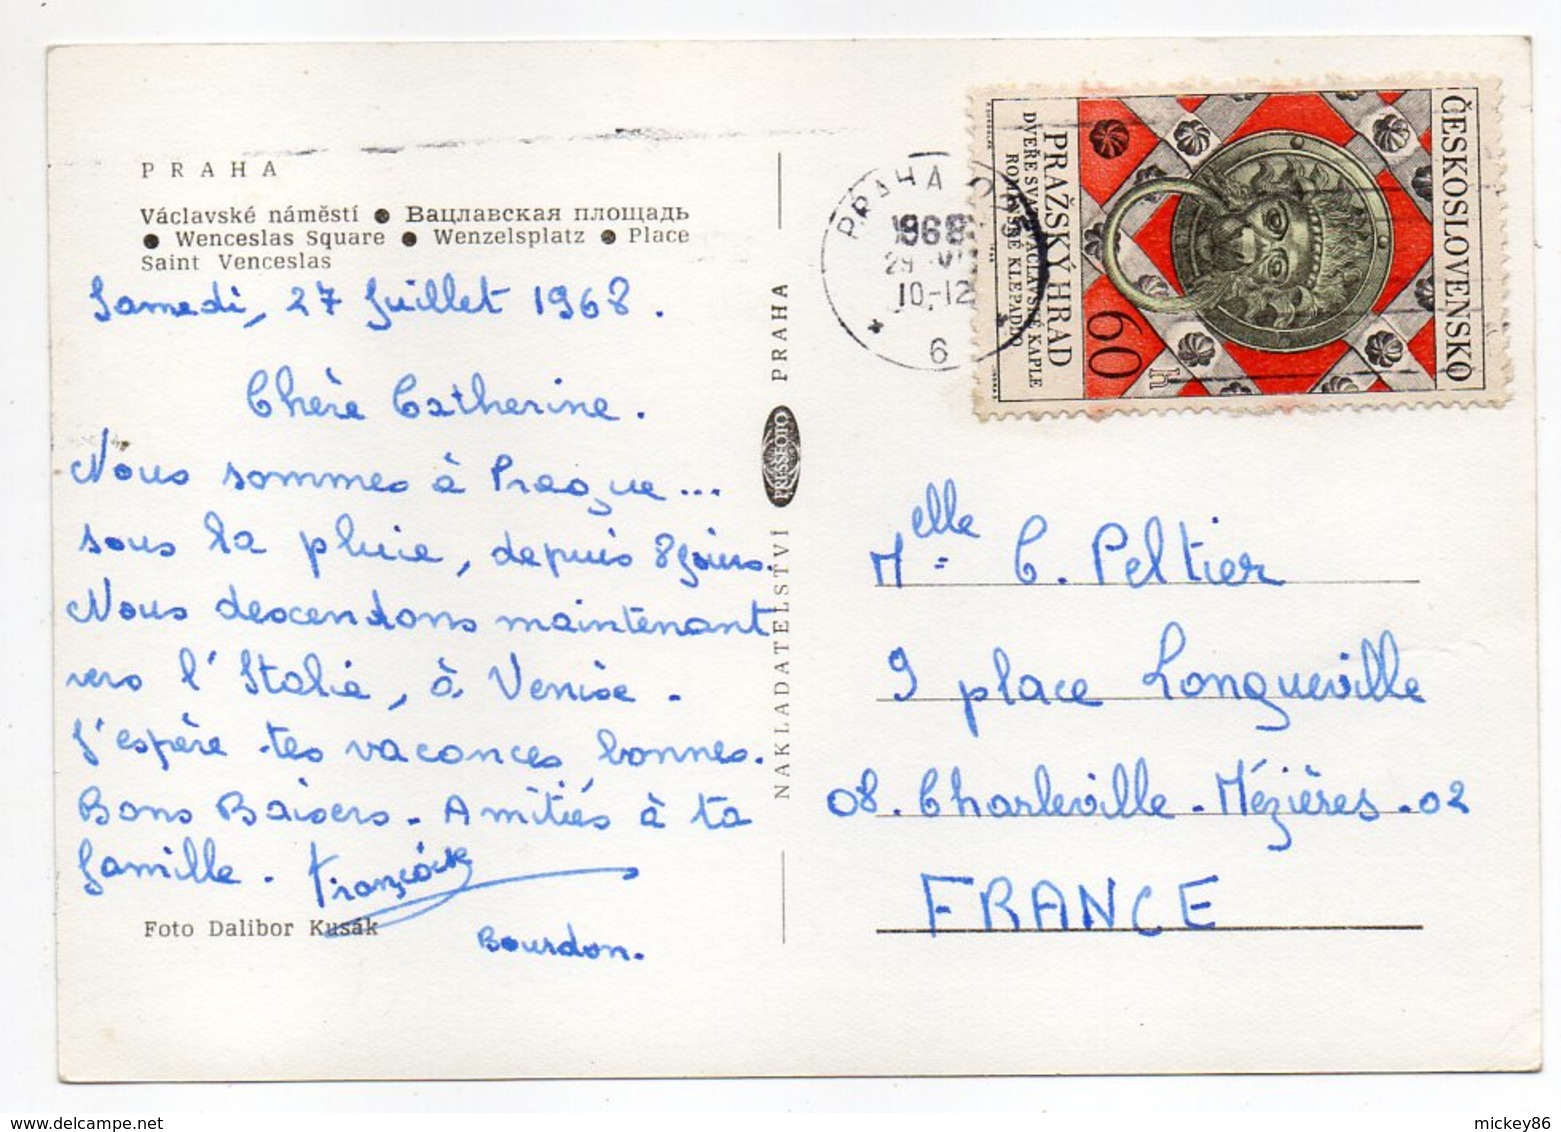 PRAHA
Václavské náměstí ● Вацлавская площадь
● Wenceslas Square ● Wenzelsplatz ● Place
Saint Venceslas
Samedi, 27 Juillet 1968.
Chère Catherine.
Nous sommes à Prague...
sous la pluie, depuis 8 jours.
Nous descendons maintenant
vers l'Italie, à Venise.
J'espère tes vacances bonnes.
Bons Baisers. Amitiés à ta
famille. Françoise
Bourdon.
Foto Dalibor Kusák
NAKLADATELSTVÍ PRESSFOTO PRAHA
PRAHA
1968
29 VII
10-12
6
ČESKOSLOVENSKO
60 h
PRAŽSKÝ HRAD
DVEŘE SVATOVÁCLAVSKÉ KAPLE
ROMÁNSKÉ KLEPADLO
1968
Melle C. Peltier
9 place Longueville
08. Charleville-Mézières-02
FRANCE
mickey86